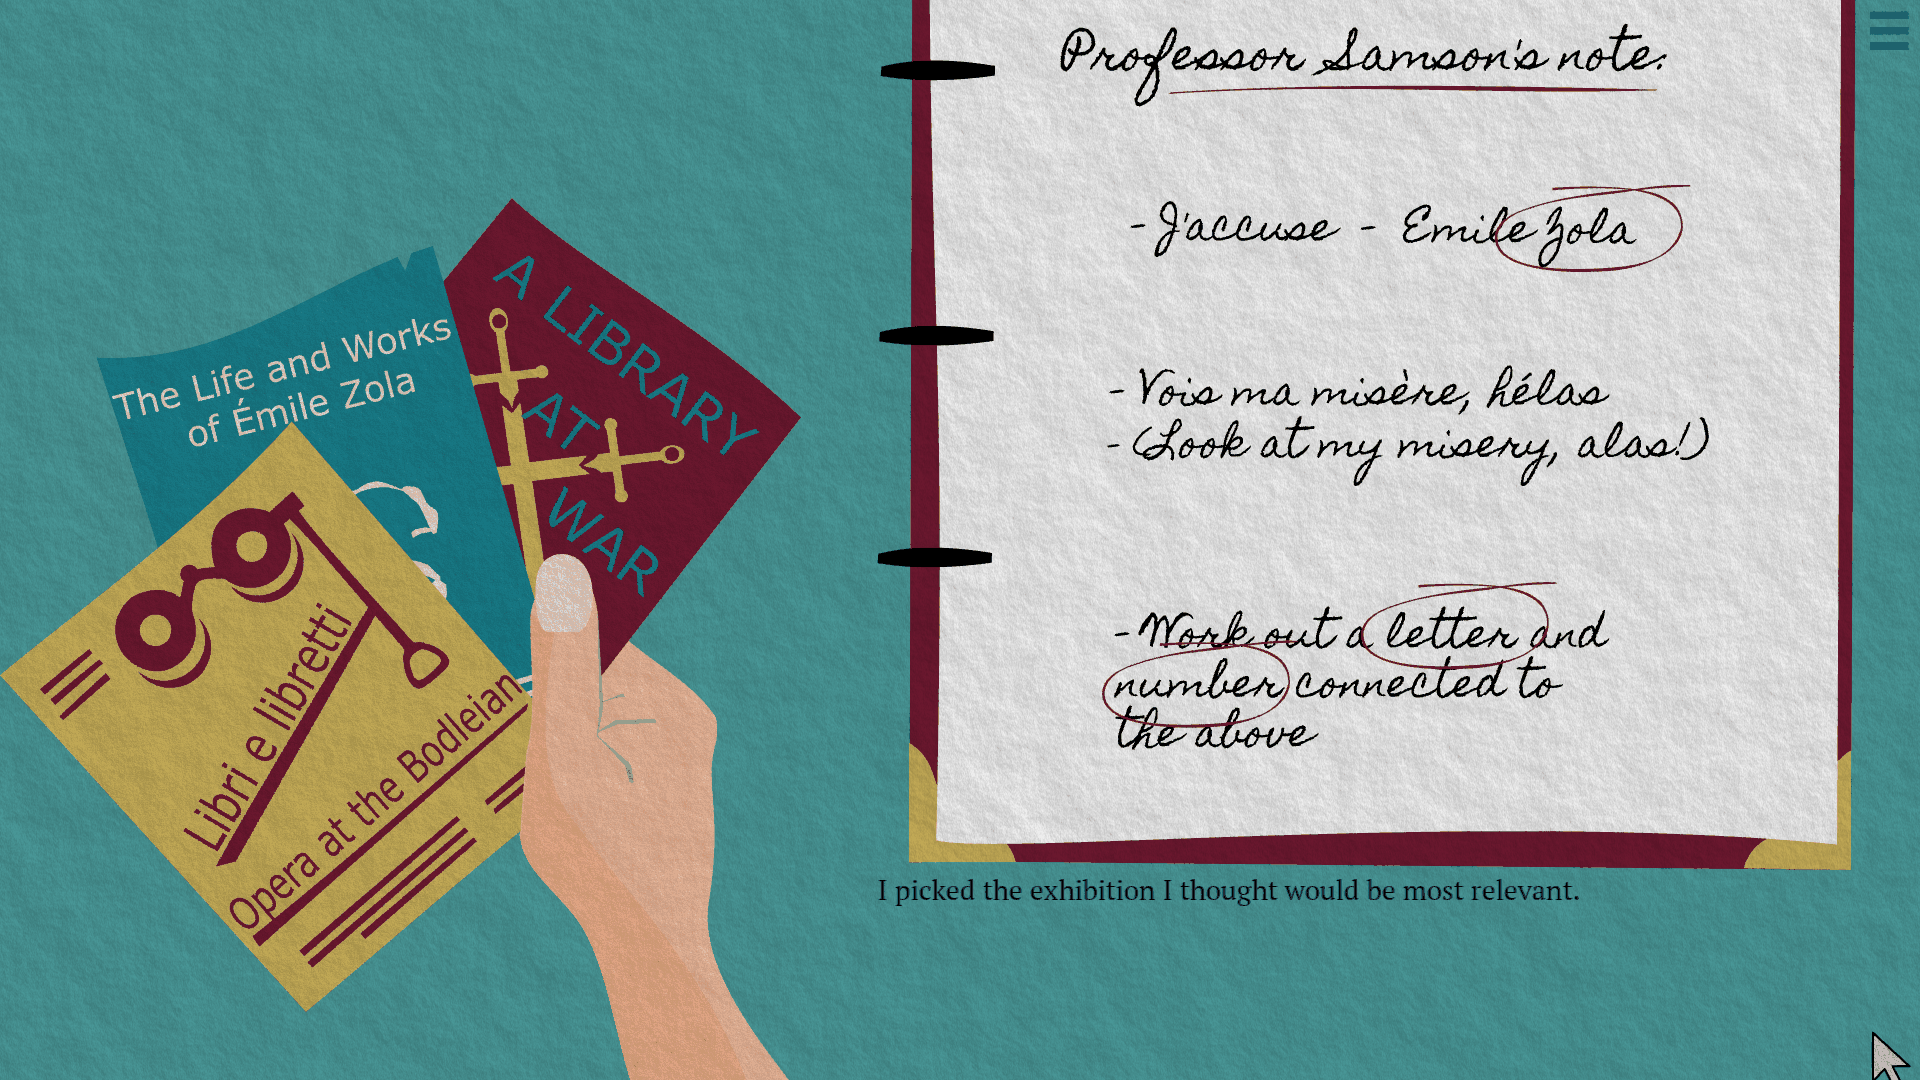 The Life and Works
of Émile Zola
A LIBRARY
AT
WAR
Libri e libretti
Opera at the Bodleian
Professor Samson's note:
- J'accuse - Emile Zola
- Vois ma misère, hélas
- (Look at my misery, alas!)
- Work out a letter and
number connected to
the above
I picked the exhibition I thought would be most relevant.